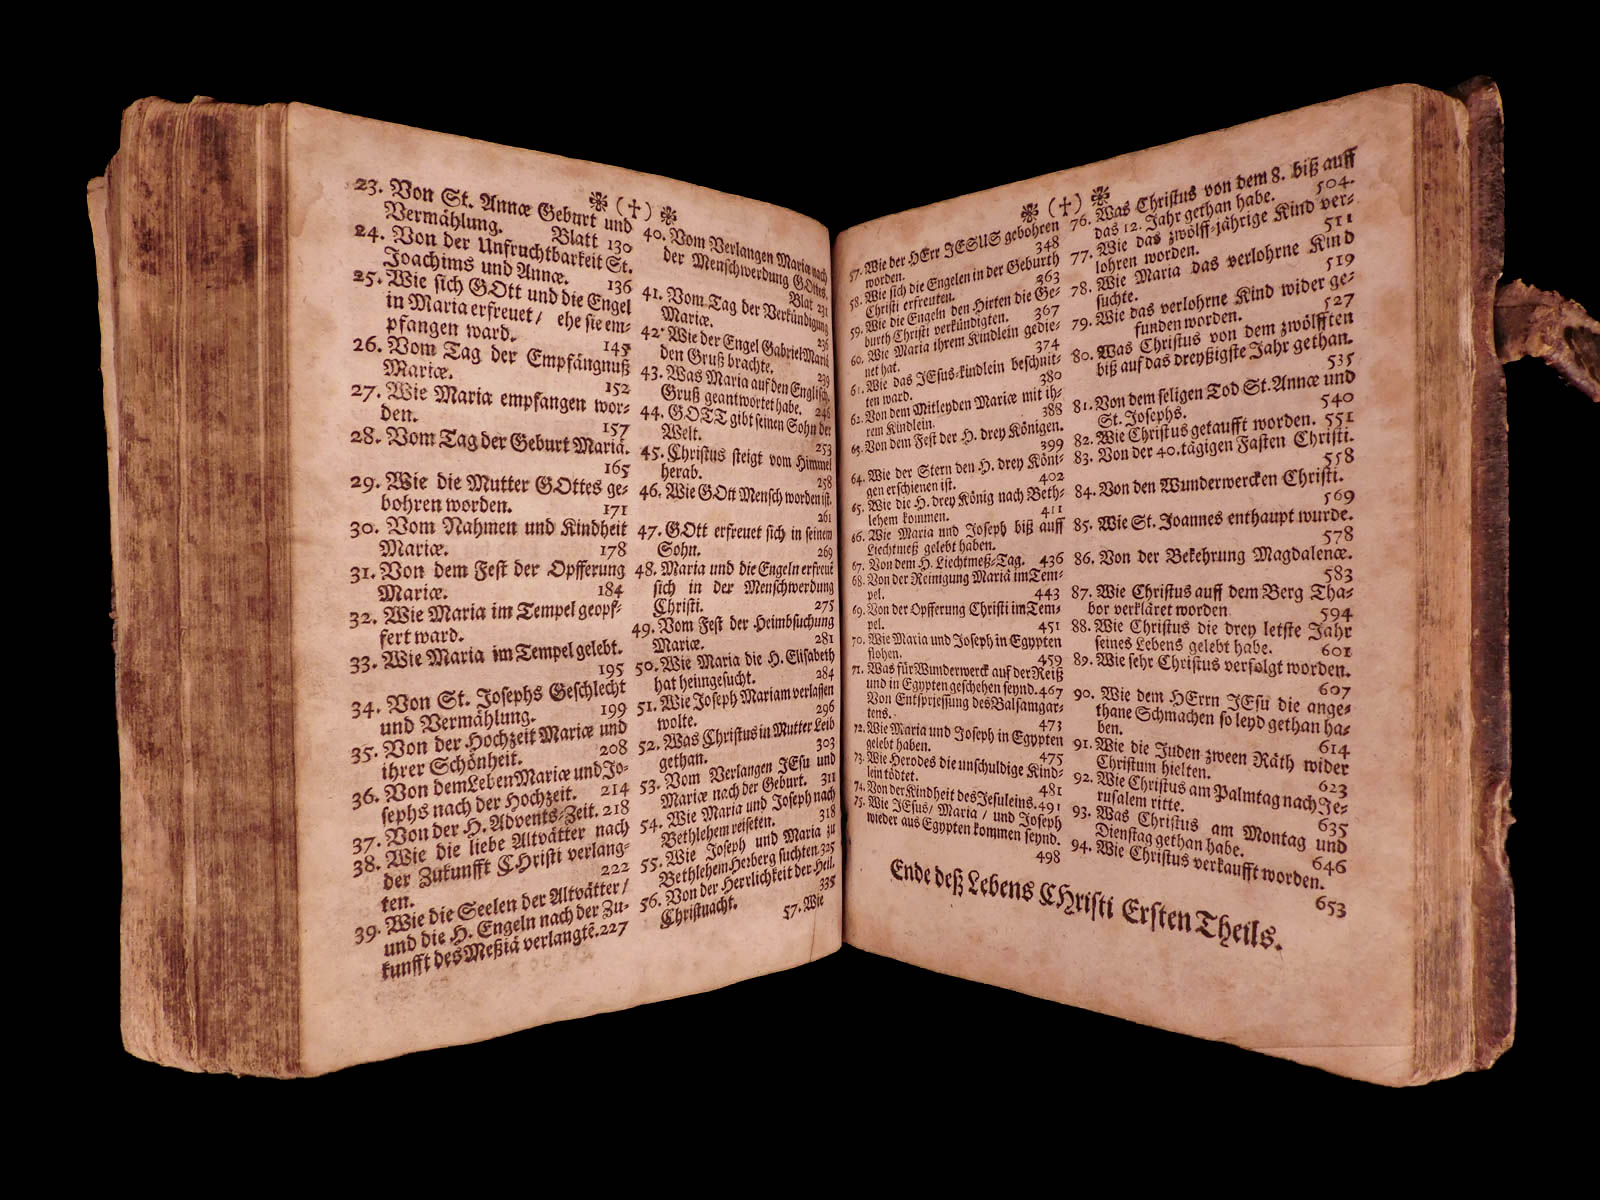 ❋ ( † ) ❋
23. Von St. Annæ Geburt und
Vermählung. Blatt 130
24. Von der Unfruchtbarkeit St.
Joachims und Annæ. 136
25. Wie sich GOtt und die Engel
in Maria erfreuet / ehe sie em-
pfangen ward. 145
26. Vom Tag der Empfängnuß
Mariæ. 152
27. Wie Maria empfangen wor-
den. 157
28. Vom Tag der Geburt Mariä.
165
29. Wie die Mutter GOttes ge-
bohren worden. 171
30. Vom Nahmen und Kindheit
Mariæ. 178
31. Von dem Fest der Opfferung
Mariæ. 184
32. Wie Maria im Tempel geopf-
fert ward.
33. Wie Maria im Tempel gelebt.
195
34. Von St. Josephs Geschlecht
und Vermählung. 199
35. Von der Hochzeit Mariæ und
ihrer Schönheit. 208
36. Von dem Leben Mariæ und Jo-
sephs nach der Hochzeit. 214
37. Von der H. Advents-Zeit. 218
38. Wie die liebe Altvätter nach
der Zukunfft CHristi verlang-
ten. 222
39. Wie die Seelen der Altvätter /
und die H. Engeln nach der Zu-
kunfft des Meßiä verlangtē. 227
40. Vom Verlangen Mariæ nach
der Menschwerdung GOttes.
Blat 231
41. Vom Tag der Verkündigung
Mariæ. 236
42. Wie der Engel Gabriel Mariä
den Gruß brachte. 239
43. Was Maria auf den Englisch.
Gruß geantwortet habe. 246
44. GOTT gibt seinen Sohn der
Welt. 253
45. Christus steigt vom Himmel
herab. 258
46. Wie GOtt Mensch worden ist.
261
47. GOtt erfreuet sich in seinem
Sohn. 269
48. Maria und die Engeln erfreut
sich in der Menschwerdung
Christi. 275
49. Vom Fest der Heimbsuchung
Mariæ. 281
50. Wie Maria die H. Elisabeth
hat heimgesucht. 284
51. Wie Joseph Mariam verlassen
wolte. 296
52. Was Christus in Mutter Leib
gethan. 303
53. Vom Verlangen JEsu und
Mariæ nach der Geburt. 311
54. Wie Maria und Joseph nach
Bethlehem reiseten. 318
55. Wie Joseph und Maria zu
Bethlehem Herberg suchten. 325
56. Von der Herrlichkeit der Heil.
Christnacht. 335
57. Wie
❋ ( † ) ❋
57. Wie der HErr JESUS gebohren
worden. 348
58. Wie sich die Engelen in der Geburth
Christi erfreuten. 363
59. Wie die Engeln den Hirten die Ge-
burth Christi verkündigten. 367
60. Wie Maria ihrem Kindlein gedie-
net hat. 374
61. Wie das JEsus-kindlein beschnit-
ten ward. 380
62. Von dem Mitleyden Mariæ mit ih-
rem Kindlein. 388
63. Von dem Fest der H. drey Königen.
399
64. Wie der Stern den H. drey Köni-
gen erschienen ist. 402
65. Wie die H. drey König nach Beth-
lehem kommen. 411
66. Wie Maria und Joseph biß auff
Liechtmeß gelebt haben.
67. Von dem H. Liechtmeß-Tag. 436
68. Von der Reinigung Mariä im Tem-
pel. 443
69. Von der Opfferung Christi im Tem-
pel. 451
70. Wie Maria und Joseph in Egypten
flohen. 459
71. Was für Wunderwerck auf der Reiß
und in Egypten geschehen seynd. 467
Von Entspriessung des Balsamgar-
tens. 473
72. Wie Maria und Joseph in Egypten
gelebt haben. 475
73. Wie Herodes die unschuldige Kind-
lein tödtet. 481
74. Von der Kindheit des Jesuleins. 491
75. Wie JEsus / Maria / und Joseph
wieder aus Egypten kommen seynd.
498
76. Was Christus von dem 8. biß auff
das 12. Jahr gethan habe. 504.
77. Wie das zwölff-jährige Kind ver-
lohren worden. 511
78. Wie Maria das verlohrne Kind
suchte. 519
79. Wie das verlohrne Kind wider ge-
funden worden. 527
80. Was Christus von dem zwölfften
biß auf das dreyßigste Jahr gethan.
535
81. Von dem seligen Tod St. Annæ und
St. Josephs. 540
82. Wie Christus getaufft worden. 551
83. Von der 40. tägigen Fasten Christi.
558
84. Von den Wunderwercken Christi.
569
85. Wie St. Joannes enthaupt wurde.
578
86. Von der Bekehrung Magdalenæ.
583
87. Wie Christus auff dem Berg Tha-
bor verkläret worden 594
88. Wie Christus die drey letste Jahr
seines Lebens gelebt habe. 601
89. Wie sehr Christus verfolgt worden.
607
90. Wie dem HErrn JEsu die ange-
thane Schmachen so leyd gethan ha-
ben. 614
91. Wie die Juden zween Räth wider
Christum hielten. 623
92. Wie Christus am Palmtag nach Je-
rusalem ritte. 635
93. Was Christus am Montag und
Dienstag gethan habe. 646
94. Wie Christus verkaufft worden.
653
Ende deß Lebens CHristi Ersten Theils.